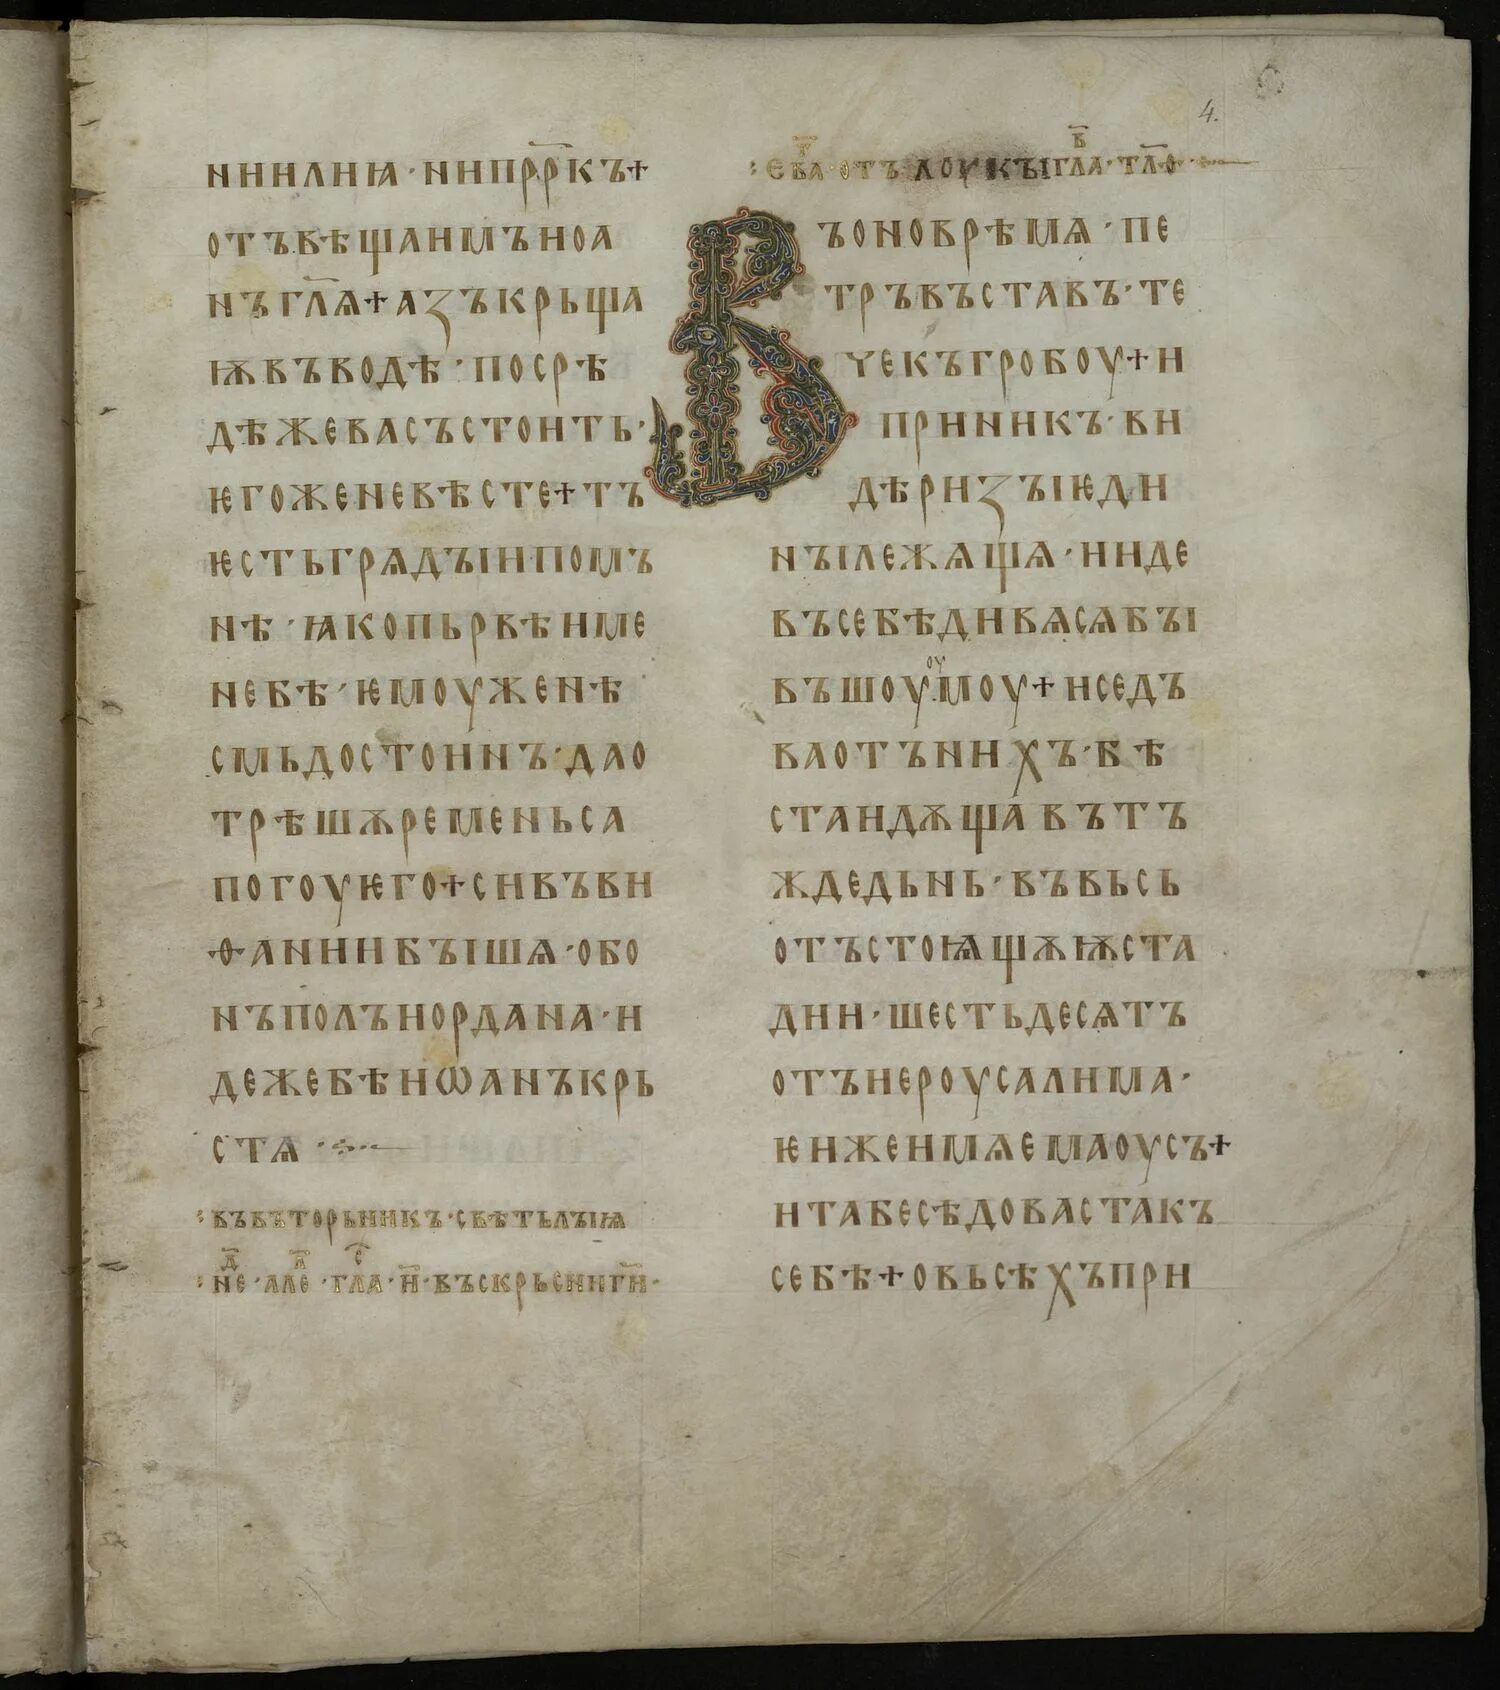 ни илиꙗ · ни пррⷪ҇къ +
отъвѣща имъ иоа
нъ глⷶ҇ѧ + азъ крьща
ѭ въ водѣ · посрѣ
дѣ же васъ стоить ·
ѥгоже не вѣсте + тъ
ѥсть грѧдꙑи по мъ
нѣ · ꙗко пьрвѣи ме
не бѣ · ѥмоуже нѣ
смь достоинъ · да о
трѣшѫ ремень са
погоу ѥго + си въ ви
ѳании бꙑшѧ · об о
нъ полъ иордана · и
деже бѣ иѡанъ крь
стѧ ·
въ въторьникъ · свѣтьлꙑꙗ
не · але · гла · и҃ · въскрьсни ги҃ ·
4.
еваⷢ҇ · отъ лоукꙑ гла · гл҃о ·
Въ оно врѣмѧ · пе
тръ въставъ · те
че къ гробоу + и
приникъ · ви
дѣ ризꙑ ѥди
нꙑ лежѧщѧ · и иде
въ себѣ дивѧсѧ бꙑ
въшоуоумоу + и се дъ
ва отъ нихъ · бѣ
ста идѫща въ тъ
жде дьнь · въ вьсь
отъстоѩщѫѭ ста
дии · шесть десѧтъ
отъ иероусалима ·
ѥиже имѧ емаоусъ +
и та бесѣдоваста къ
себѣ + о вьсѣхъ при